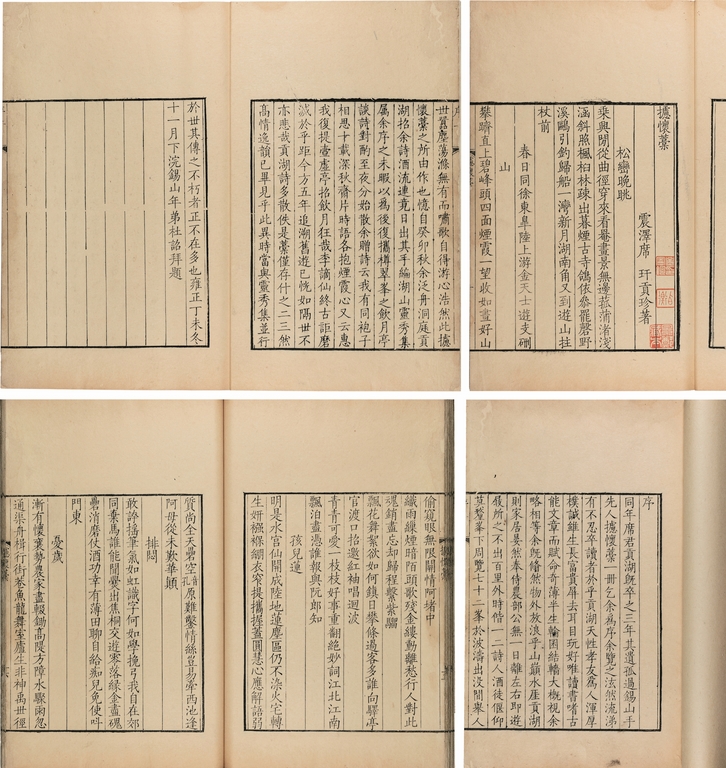 世囂塵蕩滌無有而嘯歌自得游心浩然此攄
懷藁之所由作也憶自癸卯秋余泛舟洞庭貢
湖招余詩酒流連竟日出其手編湖山靈秀集
屬余序之未暇以為後復攜樽翠峯之飲月亭
談詩對酌至夜分始散余贈詩云我有同袍子
相思十載深秋齋片時語各抱煙霞心又云惠
我復提壺虛亭招飲月狂哉李謫仙終古詎磨
滅於乎距今方五年追溯舊遊已恍如隔世不
亦悲哉貢湖詩多散佚是藁僅存什之二三然
高情逸韻已畢見乎此異時當與靈秀集並行
於世其傳之不朽者正不在多也雍正丁未冬
十一月下浣錫山年弟杜詔拜題
攄懷藁
震澤席 玕貢珍著
松巒晚眺
乘興閒從曲徑穿來看罨畫景無邊菰蒲渚淺
涵斜照楓桕林疎出暮煙古寺鴿依叅罷磬野
溪鷗引釣歸船一灣新月湖南角又到遊山拄
杖前
春日同徐東阜陸上游金天士遊支硎
山
攀躋直上碧峰頭四面煙霞一望收如畫好山
偷窺眼無限關情阿堵中
織雨線煙暗陌頭歌殘金縷動離愁行人對此
魂銷盡忘却歸程繫紫騮
飄花舞絮欲如何鎮日攀條過客多誰向驛亭
官渡口招邀紅袖唱迴波
青青可愛一枝枝好事重翻絶妙詞江北江南
飄泊盡憑誰報與阮郎知
孩兒蓮
明是水宮仙開成陸地蓮塵區仍不染火宅轉
生妍襁褓綳衣窄提攜握蓋圓慧心應解語弱
質尚全天暠空音孔原難鑿情絲豈易牽西池逢
阿母從未歎華顚
排悶
敢誇搖筆氣如虹識字何如學挽弓我自在郊
同棄馬誰能聞爨出焦桐交遊零落緣金盡磈
礧消磨仗酒功幸有薄田聊自給痴兒免使呌
門東
憂歲
漸有懷襄勢農家盡輟鋤高隄方障水驟雨忽
通渠舟楫行街巷魚龍舞室廬生非神禹世徑
序
同年席君貢湖旣卒之三年其遺孤過錫山手
先人攄懷藁一冊乞余為序余覽之泫然流涕
有不忍卒讀者於乎貢湖天性孝友爲人渾厚
樸誠雖生長富貴屏去耳目玩好唯讀書嗜古
能文章而賦命奇薄半生輪囷結轖大概視余
略相等余旣翛然物外放浪乎山巔水厓貢湖
則家居㬎然奉侍農部公無一日離左右即遊
屐所之不出百里外時偕一二詩人酒徒偃仰
莫釐峯下周覽七十二峯於波濤出沒間舉人